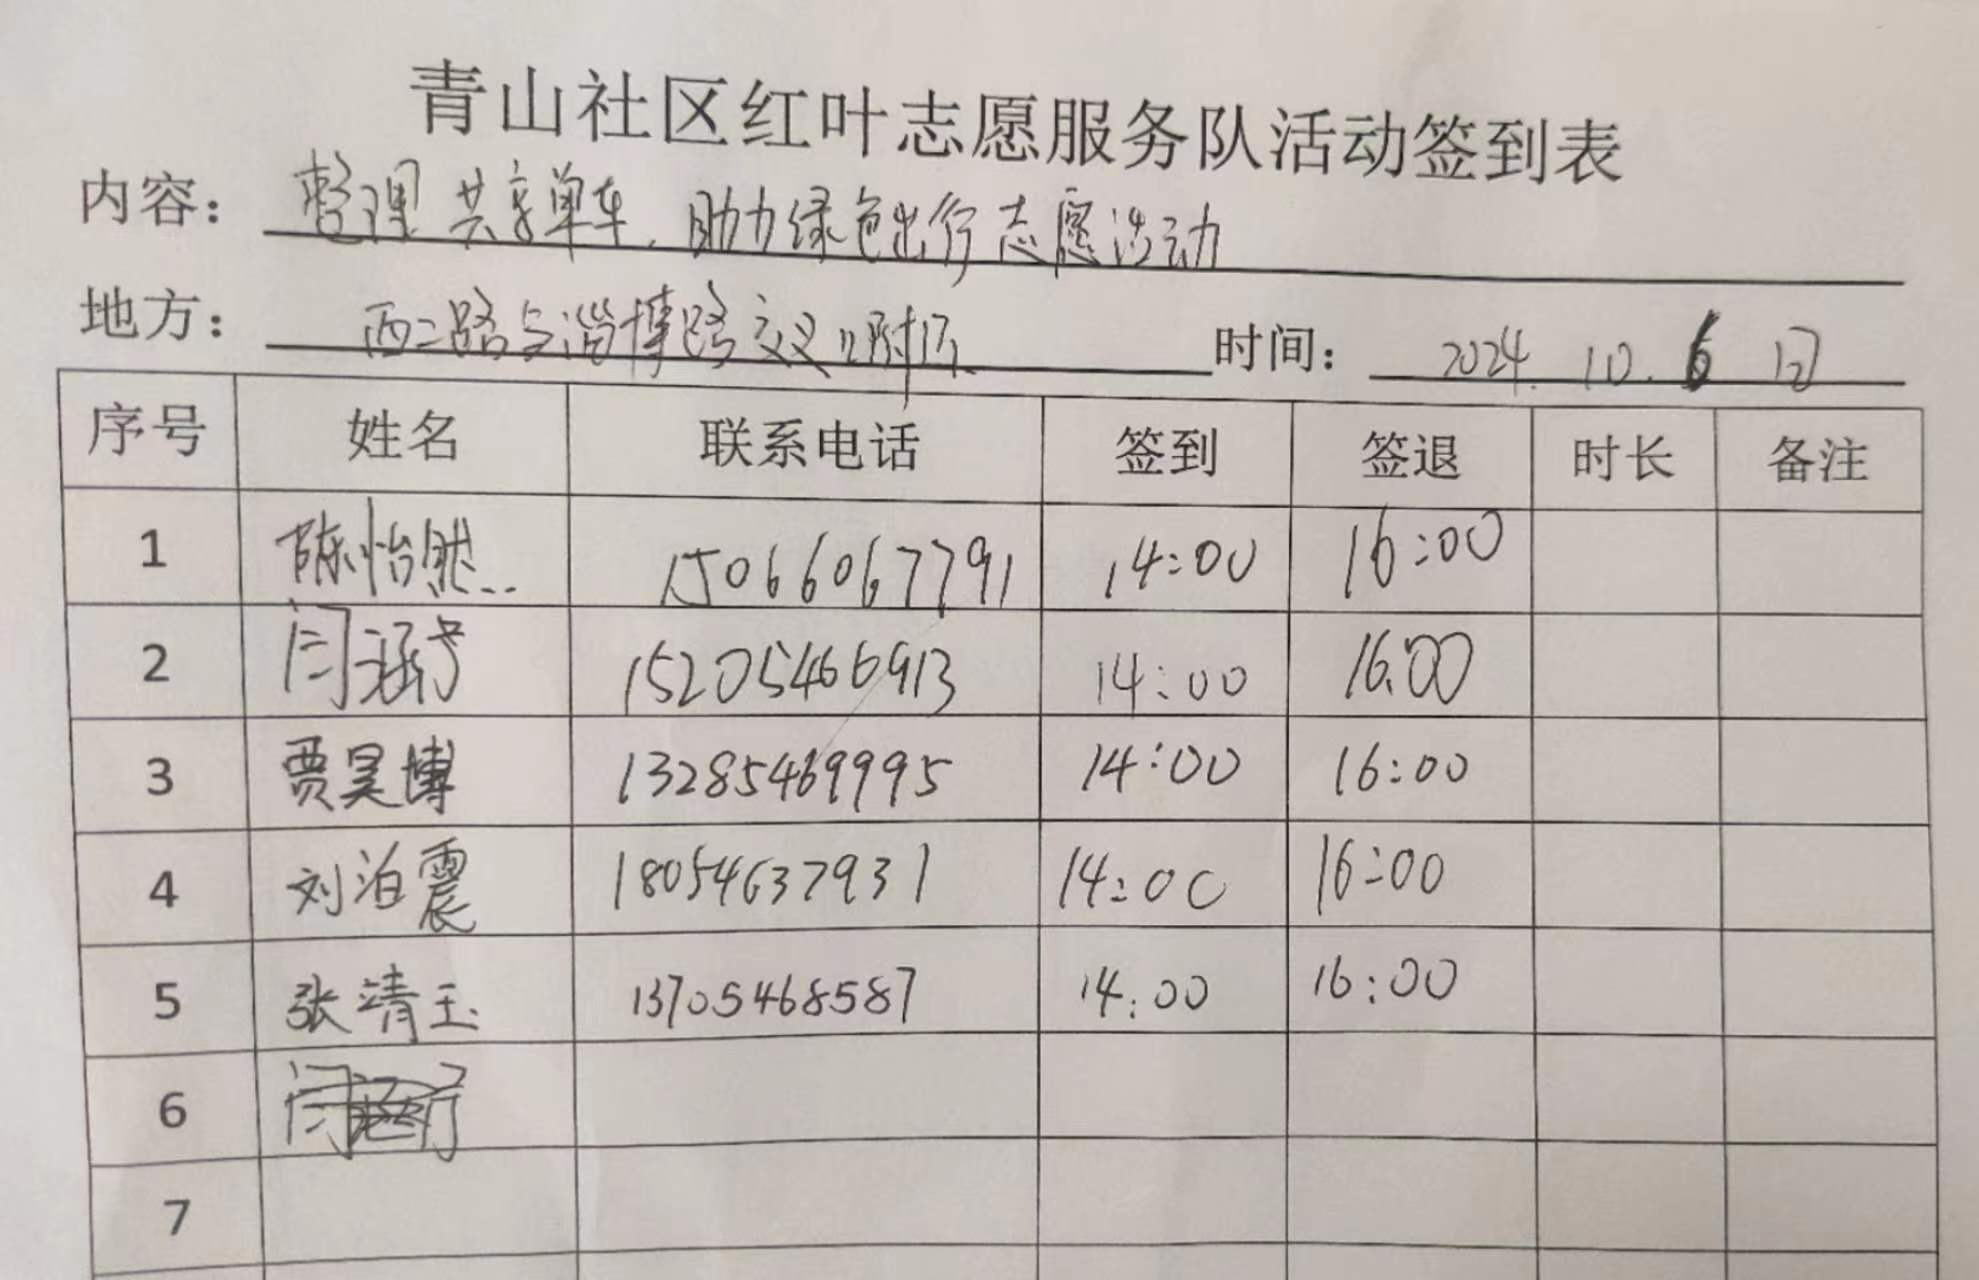 青山社区红叶志愿服务队活动签到表
内容： 整理共享单车，助力绿色出行志愿活动
地方： 西二路与淄博路交叉口附近 时间： 2024.10.6日
序号 姓名 联系电话 签到 签退 时长 备注
1 陈怡然 15066067791 14:00 16:00
2 闫涵 15205466913 14:00 16:00
3 贾昊博 13285469995 14:00 16:00
4 刘泊震 18054637931 14:00 16:00
5 张清玉 13705468587 14:00 16:00
6
7